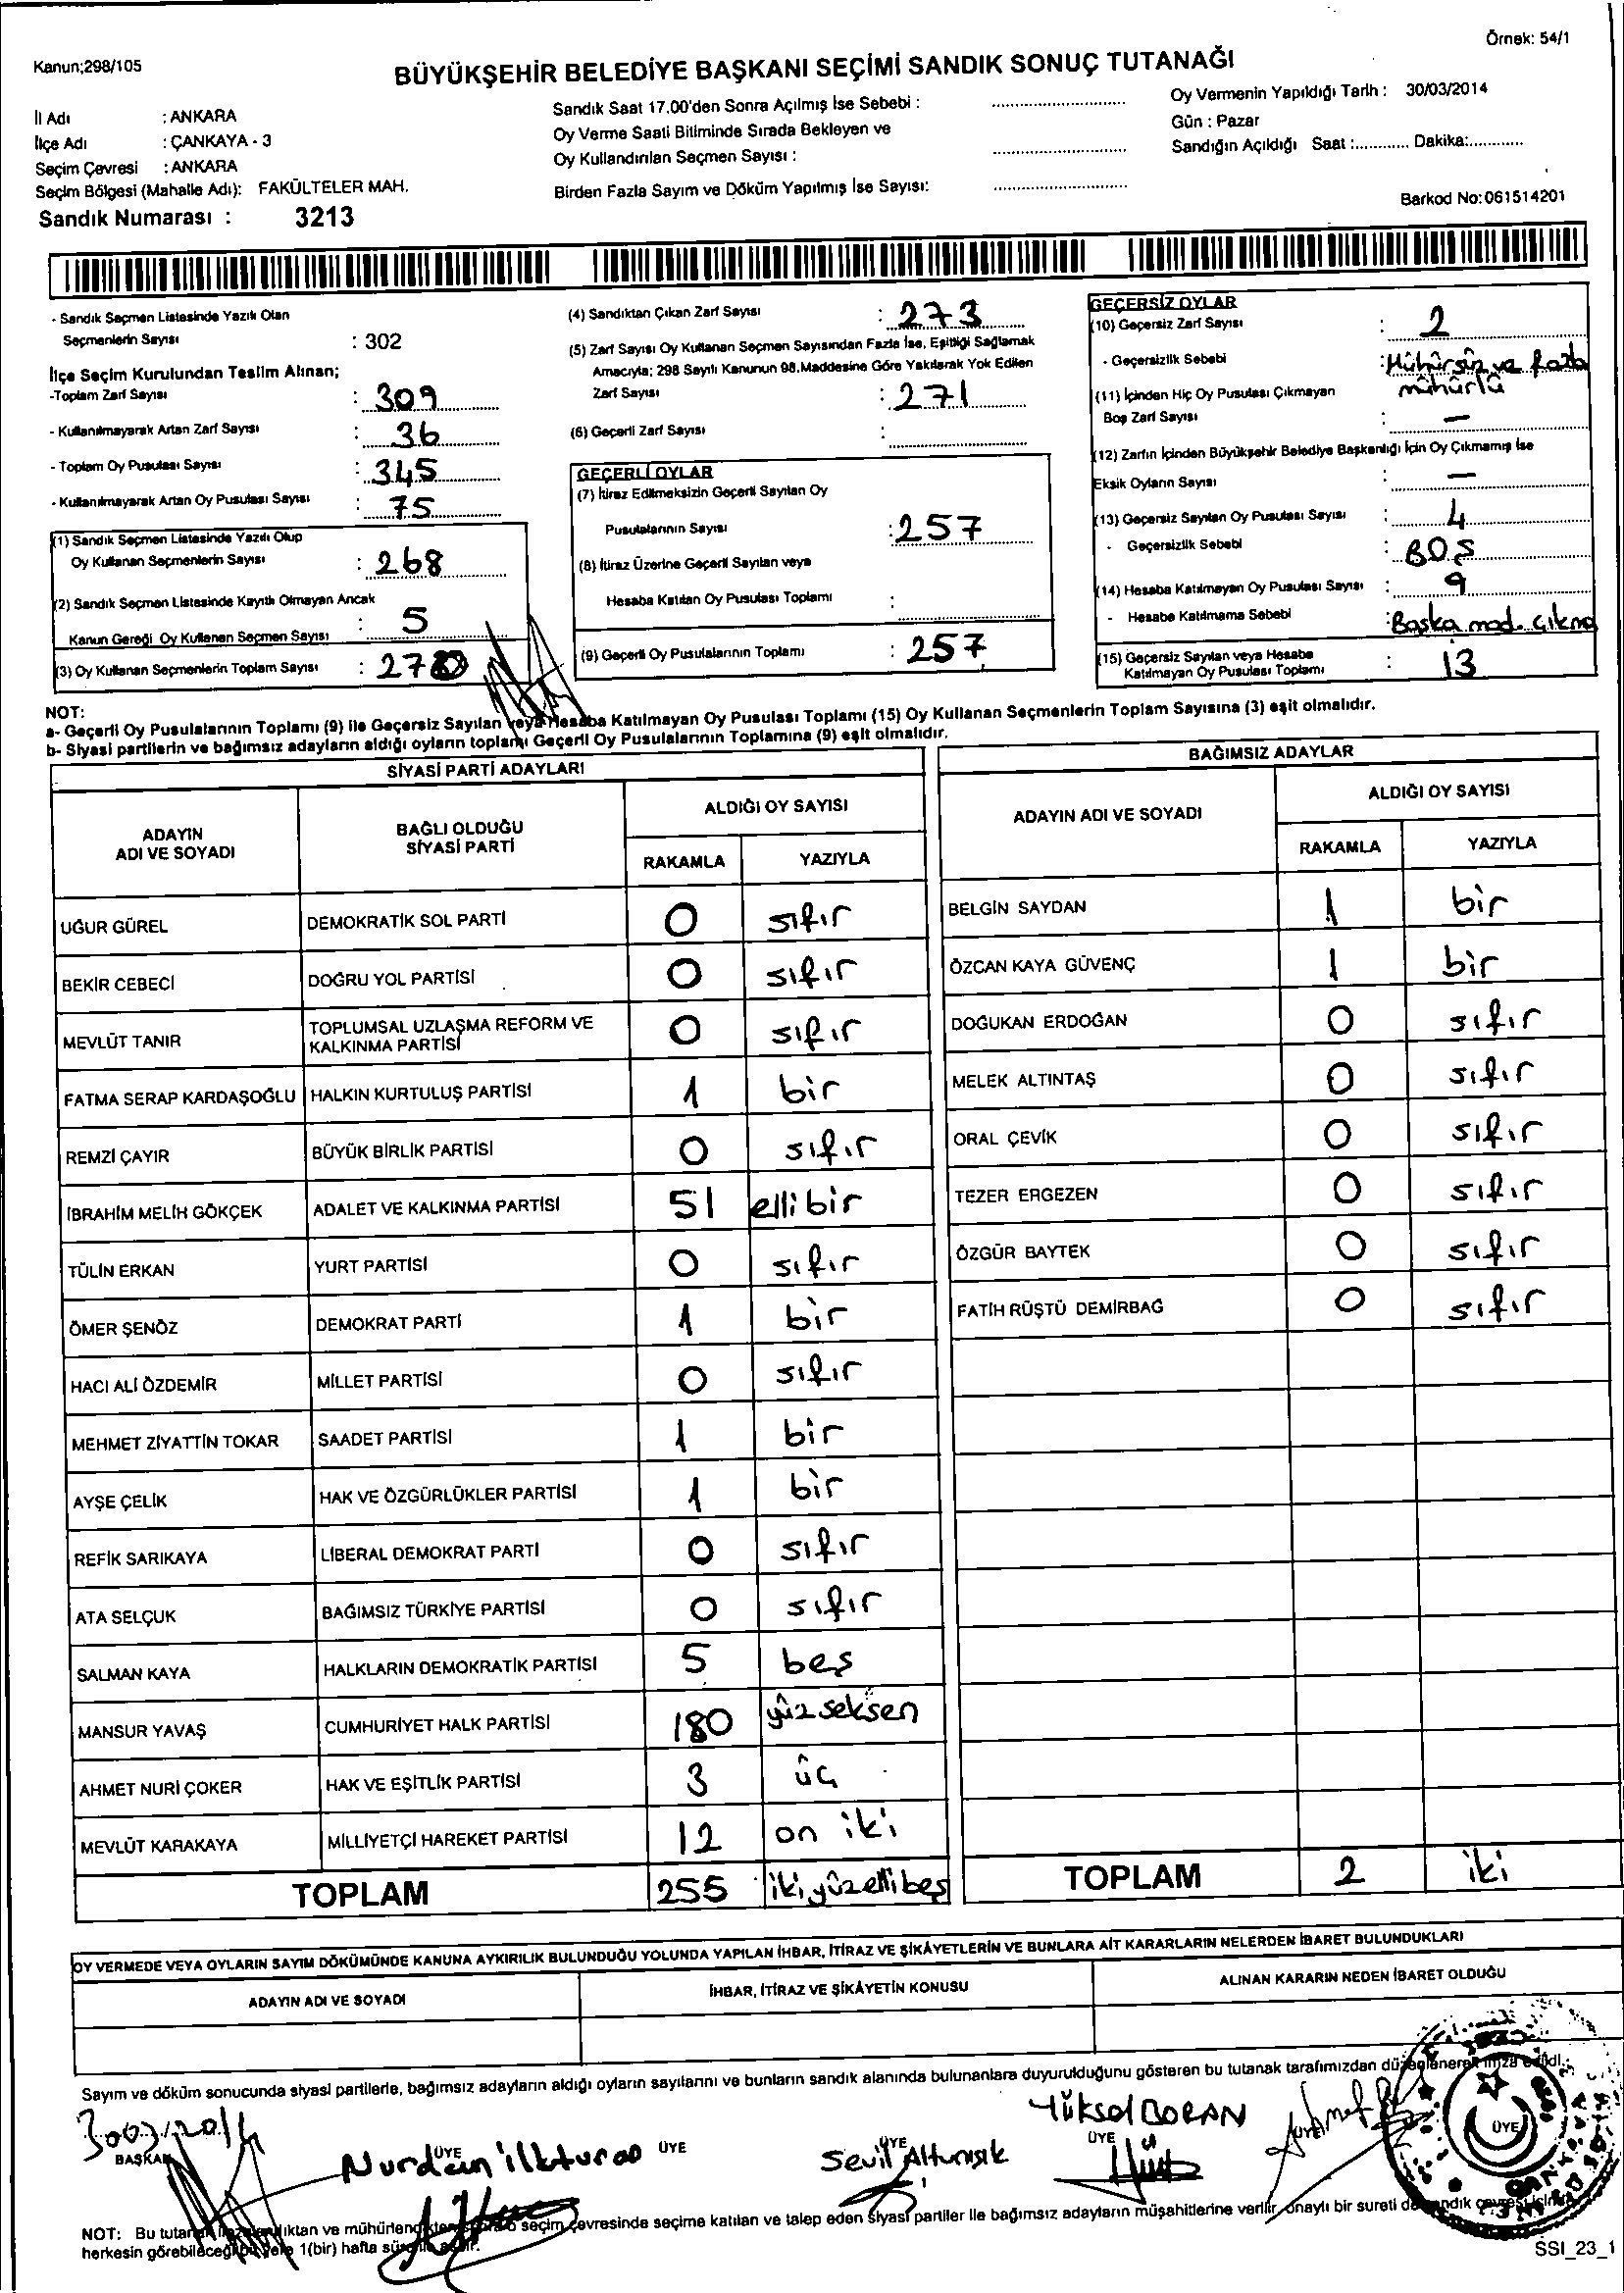 Örnek: 54/1
Kanun;298/105
BÜYÜKŞEHİR BELEDİYE BAŞKANI SEÇİMİ SANDIK SONUÇ TUTANAĞI
İl Adı : ANKARA
İlçe Adı : ÇANKAYA - 3
Seçim Çevresi : ANKARA
Seçim Bölgesi (Mahalle Adı): FAKÜLTELER MAH.
Sandık Numarası : 3213
Sandık Saat 17.00'den Sonra Açılmış İse Sebebi :
Oy Verme Saati Bitiminde Sırada Bekleyen ve
Oy Kullandırılan Seçmen Sayısı :
Birden Fazla Sayım ve Döküm Yapılmış İse Sayısı:
Oy Vermenin Yapıldığı Tarih : 30/03/2014
Gün : Pazar
Sandığın Açıldığı Saat :............ Dakika:............
Barkod No:061514201
- Sandık Seçmen Listesinde Yazılı Olan
Seçmenlerin Sayısı : 302
İlçe Seçim Kurulundan Teslim Alınan;
-Toplam Zarf Sayısı : 309
- Kullanılmayarak Artan Zarf Sayısı : 36
- Toplam Oy Pusulası Sayısı : 345
- Kullanılmayarak Artan Oy Pusulası Sayısı : 75
(1) Sandık Seçmen Listesinde Yazılı Olup
Oy Kullanan Seçmenlerin Sayısı : 268
(2) Sandık Seçmen Listesinde Kayıtlı Olmayan Ancak
Kanun Gereği Oy Kullanan Seçmen Sayısı : 5
(3) Oy Kullanan Seçmenlerin Toplam Sayısı : 270
(4) Sandıktan Çıkan Zarf Sayısı : 273
(5) Zarf Sayısı Oy Kullanan Seçmen Sayısından Fazla İse, Eşitliği Sağlamak
Amacıyla; 298 Sayılı Kanunun 98.Maddesine Göre Yakılarak Yok Edilen
Zarf Sayısı : 271
(6) Geçerli Zarf Sayısı :
GEÇERLİ OYLAR
(7) İtiraz Edilmeksizin Geçerli Sayılan Oy
Pusulalarının Sayısı : 257
(8) İtiraz Üzerine Geçerli Sayılan veya
Hesaba Katılan Oy Pusulası Toplamı :
(9) Geçerli Oy Pusulalarının Toplamı : 257
GEÇERSİZ OYLAR
(10) Geçersiz Zarf Sayısı : 2
- Geçersizlik Sebebi : Mühürsüz ve fazla
mühürlü
(11) İçinden Hiç Oy Pusulası Çıkmayan
Boş Zarf Sayısı : —
(12) Zarfın İçinden Büyükşehir Belediye Başkanlığı İçin Oy Çıkmamış İse
Eksik Oyların Sayısı : —
(13) Geçersiz Sayılan Oy Pusulası Sayısı : 4
- Geçersizlik Sebebi : BOŞ
(14) Hesaba Katılmayan Oy Pusulası Sayısı : 9
- Hesaba Katılmama Sebebi : Başka mad. çıkma
(15) Geçersiz Sayılan veya Hesaba
Katılmayan Oy Pusulası Toplamı : 13
NOT:
a- Geçerli Oy Pusulalarının Toplamı (9) ile Geçersiz Sayılan veya Hesaba Katılmayan Oy Pusulası Toplamı (15) Oy Kullanan Seçmenlerin Toplam Sayısına (3) eşit olmalıdır.
b- Siyasi partilerin ve bağımsız adayların aldığı oyların toplamı Geçerli Oy Pusulalarının Toplamına (9) eşit olmalıdır.
SİYASİ PARTİ ADAYLARI
ADAYIN ADI VE SOYADI BAĞLI OLDUĞU SİYASİ PARTİ ALDIĞI OY SAYISI
RAKAMLA YAZIYLA
UĞUR GÜREL DEMOKRATİK SOL PARTİ 0 sıfır
BEKİR CEBECİ DOĞRU YOL PARTİSİ 0 sıfır
MEVLÜT TANIR TOPLUMSAL UZLAŞMA REFORM VE KALKINMA PARTİSİ 0 sıfır
FATMA SERAP KARDAŞOĞLU HALKIN KURTULUŞ PARTİSİ 1 bir
REMZİ ÇAYIR BÜYÜK BİRLİK PARTİSİ 0 sıfır
İBRAHİM MELİH GÖKÇEK ADALET VE KALKINMA PARTİSİ 51 ellibir
TÜLİN ERKAN YURT PARTİSİ 0 sıfır
ÖMER ŞENÖZ DEMOKRAT PARTİ 1 bir
HACI ALİ ÖZDEMİR MİLLET PARTİSİ 0 sıfır
MEHMET ZİYATTİN TOKAR SAADET PARTİSİ 1 bir
AYŞE ÇELİK HAK VE ÖZGÜRLÜKLER PARTİSİ 1 bir
REFİK SARIKAYA LİBERAL DEMOKRAT PARTİ 0 sıfır
ATA SELÇUK BAĞIMSIZ TÜRKİYE PARTİSİ 0 sıfır
SALMAN KAYA HALKLARIN DEMOKRATİK PARTİSİ 5 beş
MANSUR YAVAŞ CUMHURİYET HALK PARTİSİ 180 yüz seksen
AHMET NURİ ÇOKER HAK VE EŞİTLİK PARTİSİ 3 üç
MEVLÜT KARAKAYA MİLLİYETÇİ HAREKET PARTİSİ 12 on iki
TOPLAM 255 ikiyüzellibeş
BAĞIMSIZ ADAYLAR
ADAYIN ADI VE SOYADI ALDIĞI OY SAYISI
RAKAMLA YAZIYLA
BELGİN SAYDAN 1 bir
ÖZCAN KAYA GÜVENÇ 1 bir
DOĞUKAN ERDOĞAN 0 sıfır
MELEK ALTINTAŞ 0 sıfır
ORAL ÇEVİK 0 sıfır
TEZER ERGEZEN 0 sıfır
ÖZGÜR BAYTEK 0 sıfır
FATİH RÜŞTÜ DEMİRBAĞ 0 sıfır
TOPLAM 2 iki
OY VERMEDE VEYA OYLARIN SAYIM DÖKÜMÜNDE KANUNA AYKIRILIK BULUNDUĞU YOLUNDA YAPILAN İHBAR, İTİRAZ VE ŞİKÂYETLERİN VE BUNLARA AİT KARARLARIN NELERDEN İBARET BULUNDUKLARI
ADAYIN ADI VE SOYADI İHBAR, İTİRAZ VE ŞİKÂYETİN KONUSU ALINAN KARARIN NEDEN İBARET OLDUĞU
Sayım ve döküm sonucunda siyasi partilerle, bağımsız adayların aldığı oyların sayılarını ve bunların sandık alanında bulunanlara duyurulduğunu gösteren bu tutanak tarafımızdan düzenlenerek imza edildi.
BAŞKAN ÜYE ÜYE ÜYE ÜYE ÜYE ÜYE
Sevil Altunışık
Yüksel BORAN
NOT: Bu tutanak seçim çevresinde seçime katılan ve talep eden siyasi partiler ile bağımsız adayların müşahitlerine verilir, onaylı bir sureti de sandık çevresi içinde
herkesin görebileceği bir yere 1(bir) hafta süre ile asılır.
SSI_23_1